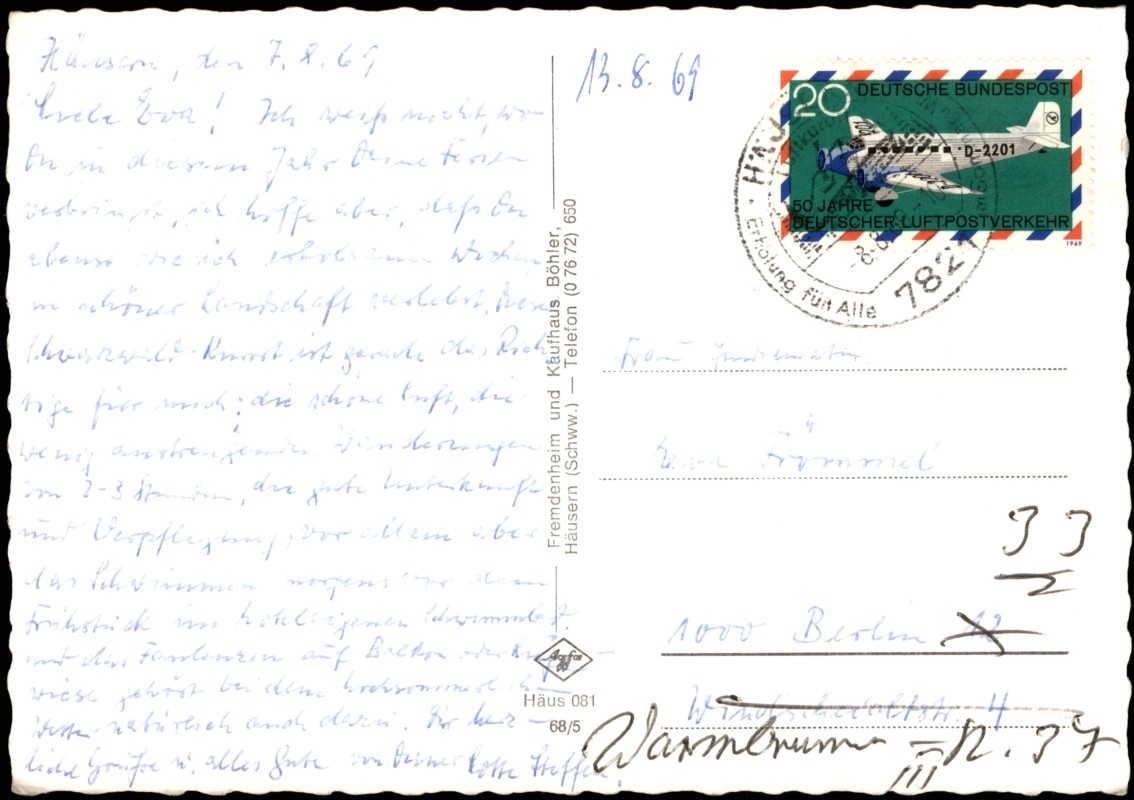 Häusern, den 7.8.69
Liebe Eva! Ich weiß nicht, wo
Du in diesem Jahr Deine Ferien
verbringst, ich hoffe aber, daß Du
ebenso wie ich erholsame Wochen
in schöner Landschaft verlebst. Dieser
Schwarzwald-Kurort ist gerade das Rich-
tige für mich: die schöne Luft, die
wenig anstrengenden Wanderungen
von 2-3 Stunden, die gute Unterkunft
und Verpflegung, vor allem aber
das Schwimmen morgens vor dem
Frühstück im hoteleigenen Schwimmbad.
und das Faulenzen auf Balkon oder
wiese gehört bei dem hochsommerlichen
Wetter natürlich auch dazu. Für herz-
liche Grüße u. alles Gute von Deiner Lotte Steffen.
13.8.69
20 DEUTSCHE BUNDESPOST
D-2201
50 JAHRE
DEUTSCHER-LUFTPOSTVERKEHR
1969
Erholung für Alle
7821
Fremdenheim und Kaufhaus Böhler,
Häusern (Schww.) — Telefon (0 76 72) 650
Agfa
Häus 081
68/5
Frau
Eva Frömmel
33
1000 Berlin 12
Windscheidtstr. 4
Warmbrunner